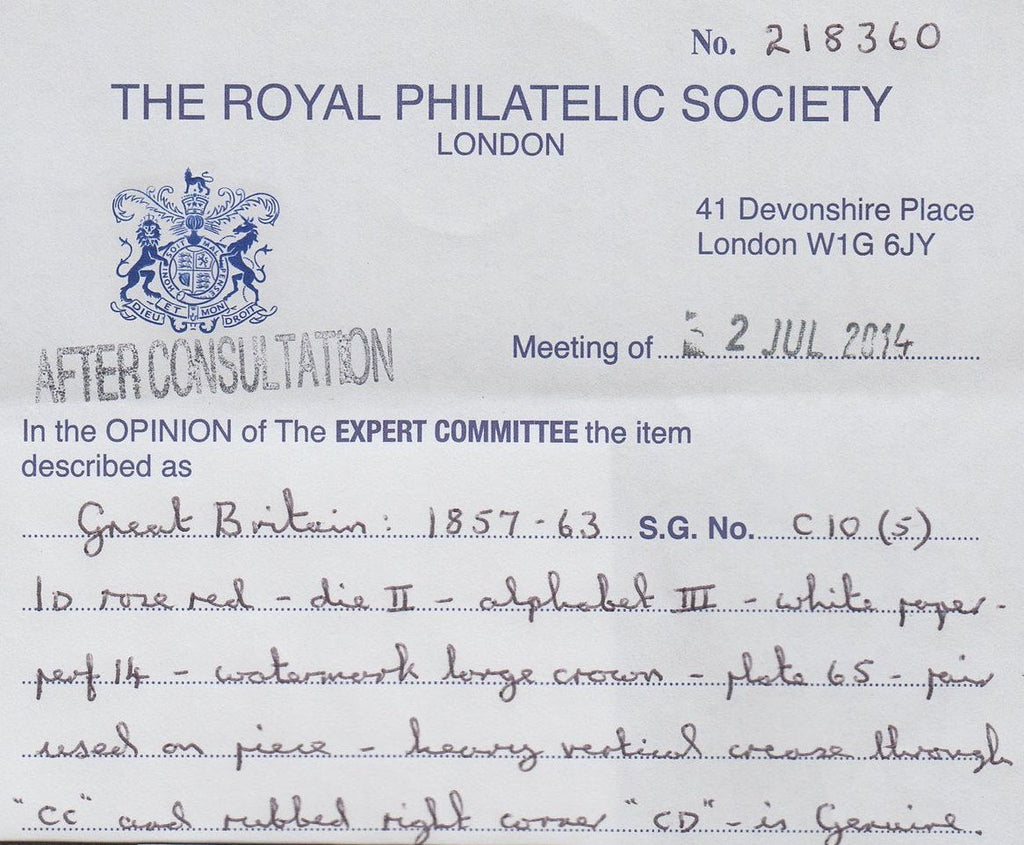 No. 218360
THE ROYAL PHILATELIC SOCIETY
LONDON
41 Devonshire Place
London W1G 6JY
HONI SOIT MAL Y PENSE
DIEU ET MON DROIT
AFTER CONSULTATION
Meeting of 2 JUL 2014
In the OPINION of The EXPERT COMMITTEE the item
described as
Great Britain: 1857-63 S.G. No. C10 (5)
1D rose red - die II - alphabet III - white paper -
perf 14 - watermark large crown - plate 65 - pair
used on piece - heavy vertical crease through
"CC" and rubbed right corner "CD" - is Genuine.